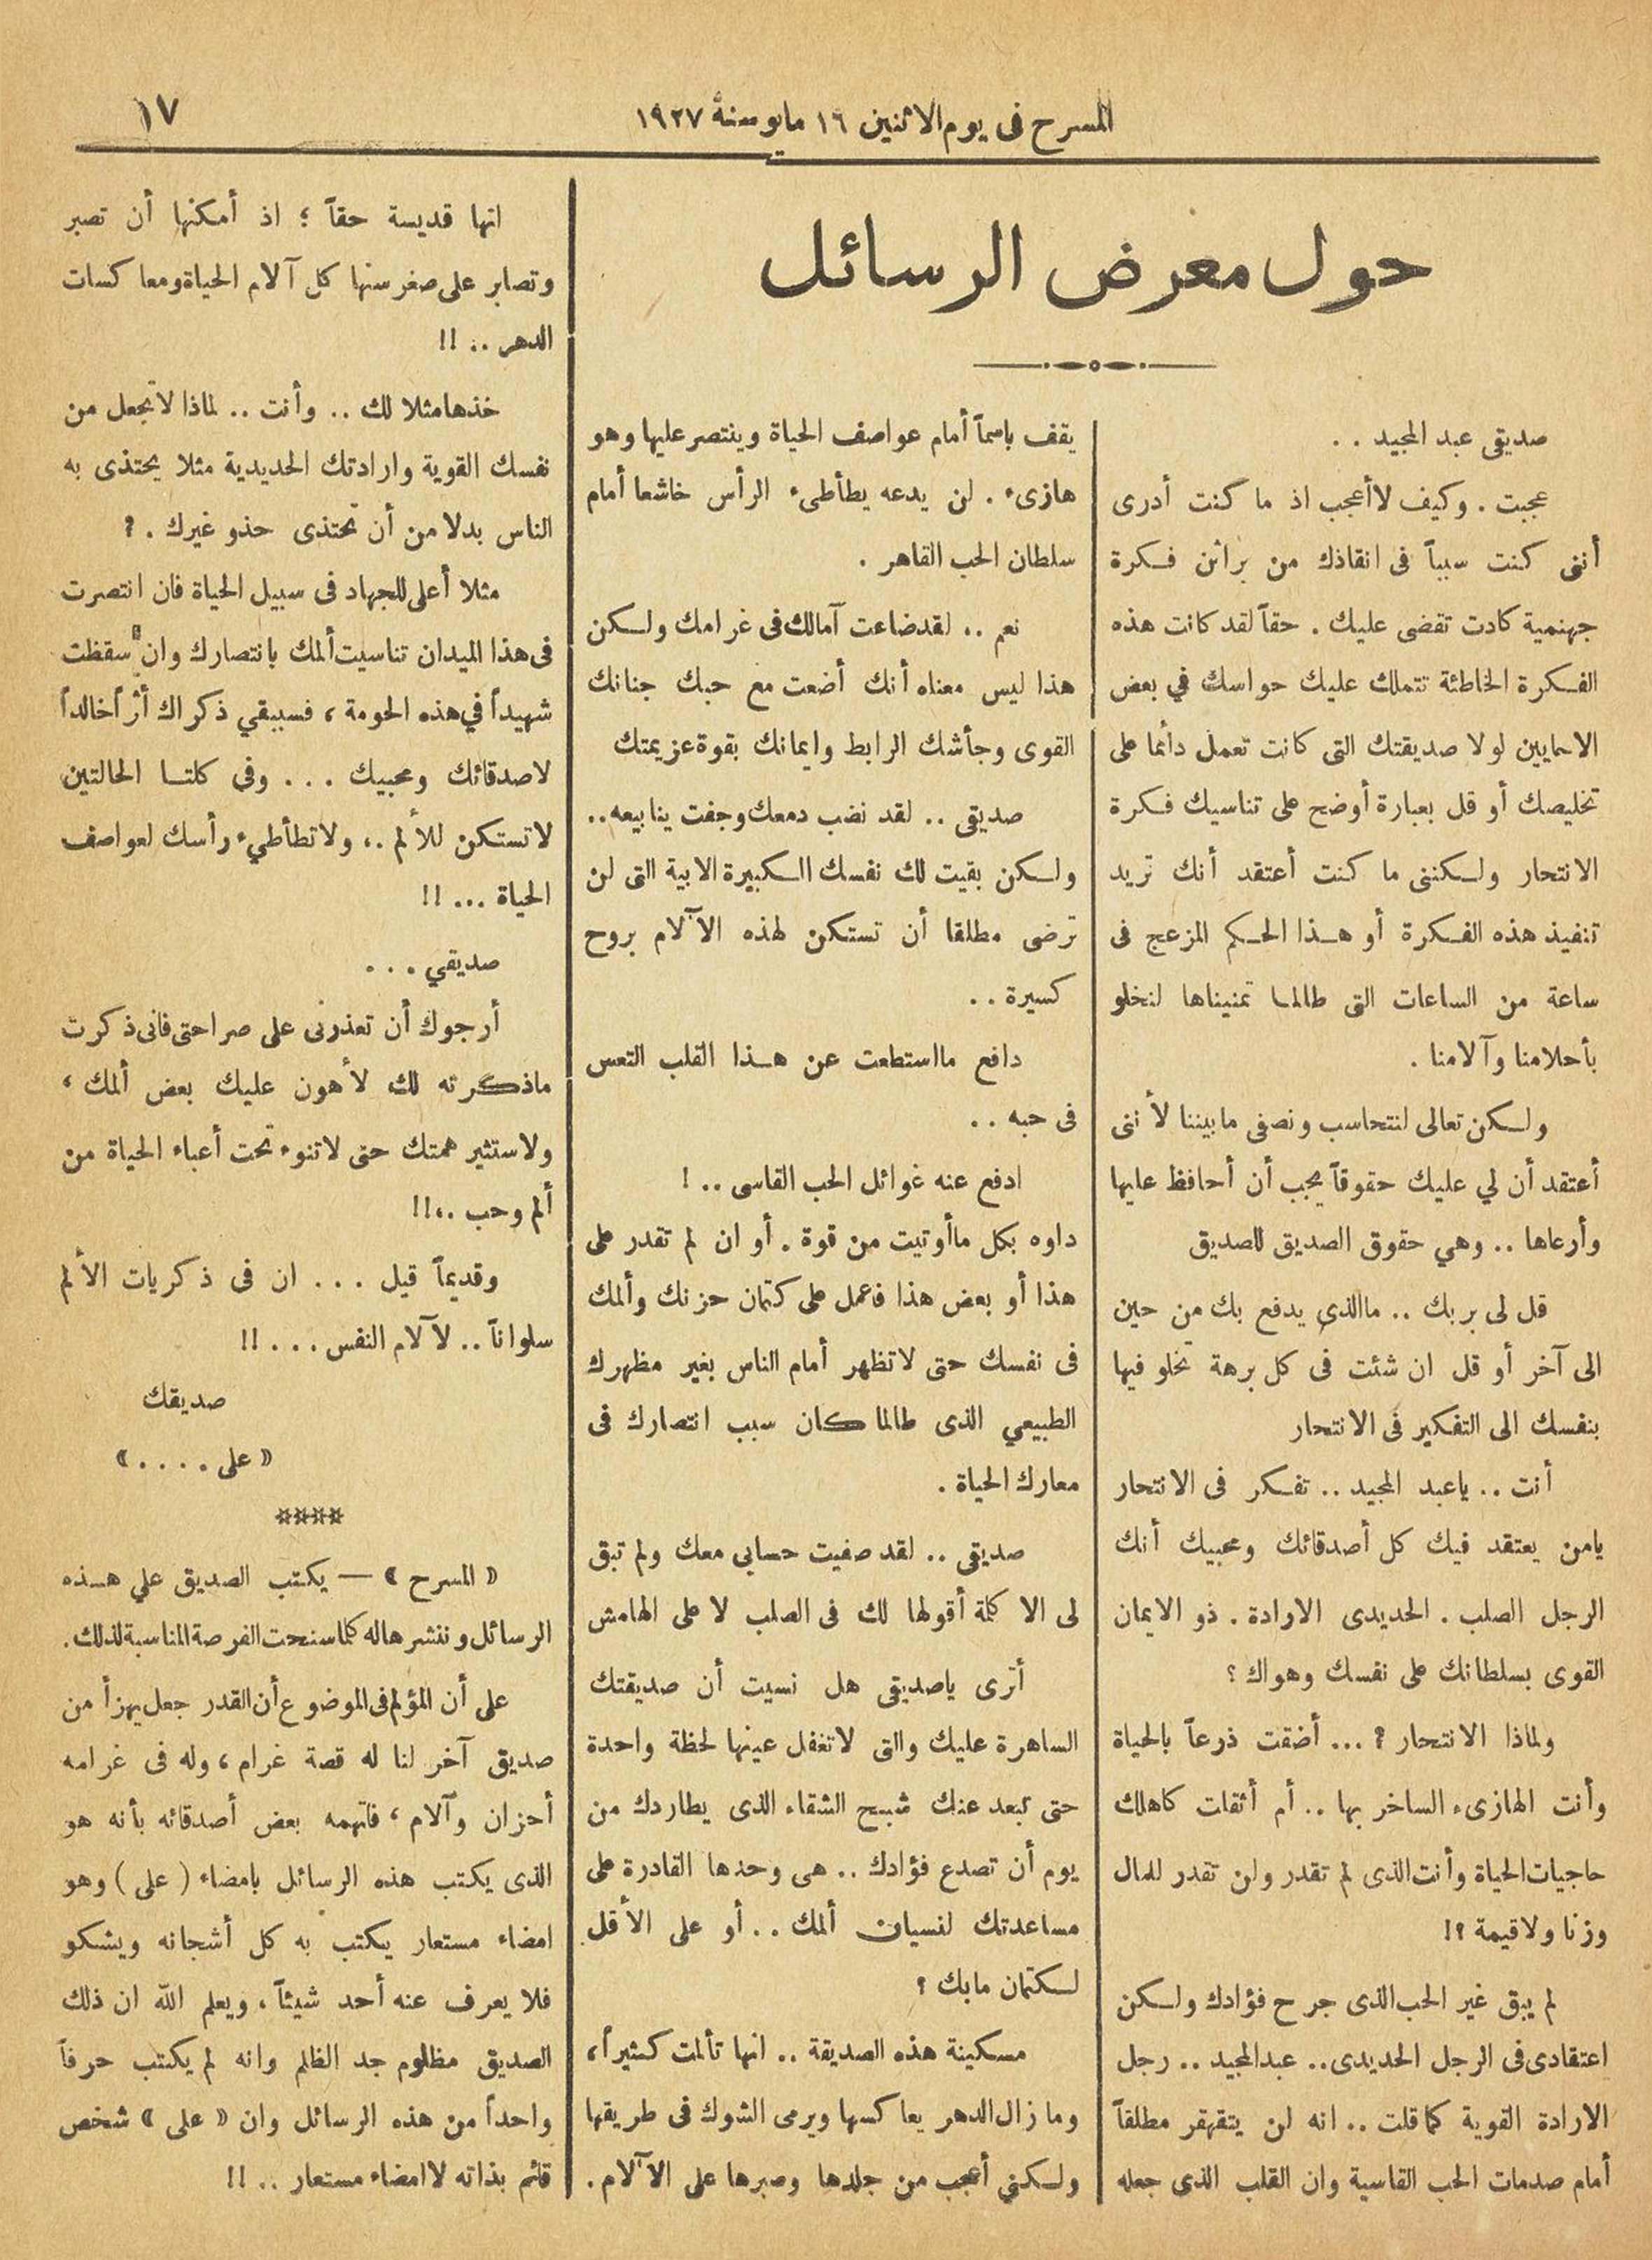 المسرح فى يوم الاثنين ١٦ مايو سنة ١٩٢٧
١٧
حول معرض الرسائل
صديقى عبد المجيد . .
عجبت . وكيف لا أعجب اذ ما كنت أدرى
أننى كنت سبباً فى انقاذك من براثن فكرة
جهنمية كادت تقضى عليك . حقاً لقد كانت هذه
الفكرة الخاطئة تتملك عليك حواسك في بعض
الاحايين لولا صديقتك التى كانت تعمل دائما على
تخليصك أو قل بعبارة أوضح على تناسيك فكرة
الانتحار ولكننى ما كنت أعتقد أنك تريد
تنفيذ هذه الفكرة أو هذا الحكم المزعج فى
ساعة من الساعات التى طالما تمنيناها لنخلو
بأحلامنا وآلامنا .
ولكن تعالى لنتحاسب ونصفى مابيننا لأننى
أعتقد أن لي عليك حقوقاً يجب أن أحافظ عليها
وأرعاها .. وهي حقوق الصديق للصديق
قل لى بربك .. ماالذى يدفع بك من حين
الى آخر أو قل ان شئت فى كل برهة تخلو فيها
بنفسك الى التفكير فى الانتحار
أنت .. ياعبد المجيد .. تفكر فى الانتحار
يامن يعتقد فيك كل أصدقائك ومحبيك أنك
الرجل الصلب . الحديدى الارادة . ذو الايمان
القوى بسلطانك على نفسك وهواك ؟
ولماذا الانتحار ؟ ... أضقت ذرعاً بالحياة
وأنت الهازىء الساخر بها .. أم أثقلت كاهلك
حاجيات الحياة وأنت الذى لم تقدر ولن تقدر للمال
وزنا ولاقيمة ؟!
لم يبق غير الحب الذى جرح فؤادك ولكن
اعتقادى فى الرجل الحديدى .. عبد المجيد .. رجل
الارادة القوية كما قلت .. انه لن يتقهقر مطلقاً
أمام صدمات الحب القاسية وان القلب الذى جعله
يقف باسماً أمام عواصف الحياة وينتصر عليها وهو
هازىء . لن يدعه يطأطىء الرأس خاشعا أمام
سلطان الحب القاهر .
نعم .. لقد ضاعت آمالك فى غرامك ولكن
هذا ليس معناه أنك أضعت مع حبك جنانك
القوى وجأشك الرابط وايمانك بقوة عزيمتك
صديقى .. لقد نضب دمعك وجفت ينابيعه ..
ولكن بقيت لك نفسك الكبيرة الابية التى لن
ترضى مطلقا أن تستكن لهذه الآلام بروح
كسيرة . .
دافع مااستطعت عن هذا القلب التعس
فى حبه . .
ادفع عنه غوائل الحب القاسى .. !
داوه بكل ماأوتيت من قوة . أو ان لم تقدر على
هذا أو بعض هذا فاعمل على كتمان حزنك وألمك
فى نفسك حتى لاتظهر أمام الناس بغير مظهرك
الطبيعي الذى طالما كان سبب انتصارك فى
معارك الحياة .
صديقى .. لقد صفيت حسابي معك ولم تبق
لى الا كلمة أقولها لك فى الصلب لا على الهامش
أترى ياصديقى هل نسيت أن صديقتك
الساهرة عليك والتى لاتغفل عينها لحظة واحدة
حتى تبعد عنك شبح الشقاء الذى يطاردك من
يوم أن تصدع فؤادك .. هى وحدها القادرة على
مساعدتك لنسيان ألمك .. أو على الأقل
لكتمان مابك ؟
مسكينة هذه الصديقة .. انها تألمت كثيراً،
وما زال الدهر يعاكسها ويرمى الشوك فى طريقها
ولكني أعجب من جلدها وصبرها على الآلام .
انها قديسة حقاً ؛ اذ أمكنها أن تصبر
وتصابر على صغر سنها كل آلام الحياة ومعاكسات
الدهر .. !!
خذها مثلا لك .. وأنت .. لماذا لاتجعل من
نفسك القوية وارادتك الحديدية مثلا يحتذى به
الناس بدلا من أن تحتذى حذو غيرك . ؟
مثلا أعلى للجهاد فى سبيل الحياة فان انتصرت
فى هذا الميدان تناسيت ألمك بانتصارك وان سقطت
شهيداً في هذه الحومة ، فسيبقي ذكراك أثراً خالداً
لاصدقائك ومحبيك . . . وفي كلتا الحالتين
لاتستكن للألم .، ولاتطأطيء رأسك لعواصف
الحياة ... !!
صديقي . . .
أرجوك أن تعذرنى على صراحتى فانى ذكرت
ماذكرته لك لأهون عليك بعض ألمك ،
ولاستثير همتك حتى لاتنوء تحت أعباء الحياة من
ألم وحب .،!!
وقديماً قيل . . . ان فى ذكريات الألم
سلواناً .. لآلام النفس . . . !!
صديقك
« على . . . . »
****
« المسرح » — يكتب الصديق علي هذه
الرسائل وننشرها له كلما سنحت الفرصة المناسبة لذلك .
على أن المؤلم فى الموضوع أن القدر جعل يهزأ من
صديق آخر لنا له قصة غرام ، وله فى غرامه
أحزان وآلام ، فاتهمه بعض أصدقائه بأنه هو
الذى يكتب هذه الرسائل بامضاء ( على ) وهو
امضاء مستعار يكتب به كل أشجانه ويشكو
فلا يعرف عنه أحد شيئاً ، ويعلم الله ان ذلك
الصديق مظلوم جد الظلم وانه لم يكتب حرفاً
واحداً من هذه الرسائل وان « على » شخص
قائم بذاته لاامضاء مستعار .. !!